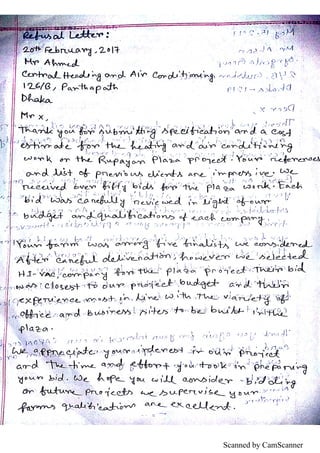 Refusal Letter:
20th February, 2017
Mr Ahmed
Central Heading and Air Conditioning
126/B, Panthapath
Dhaka
Mr x,
Thank you for submitting specification and a cost
estimate for the heating and air conditioning
work on the Rupayan Plaza project. Your references
and list of previous clients are impressive. We
received over fifty bids for the plaza work. Each
bid was carefully reviewed in light of our
budget and qualifications of each company.
Your farm was among five finalists we considered
After careful delivenation, however we selected
HI-VAC, company for the plaza project. Their bid
was closest to our project budget and their
experience most in line with the vianiety of
office and business sites to be built in the
plaza.
We appreciate your interest in our project
and the time and effort you took in preparing
your bid. We hope you will consider bidding
on future projects we supervise your
farms qualifications are excellent.
Scanned by CamScanner